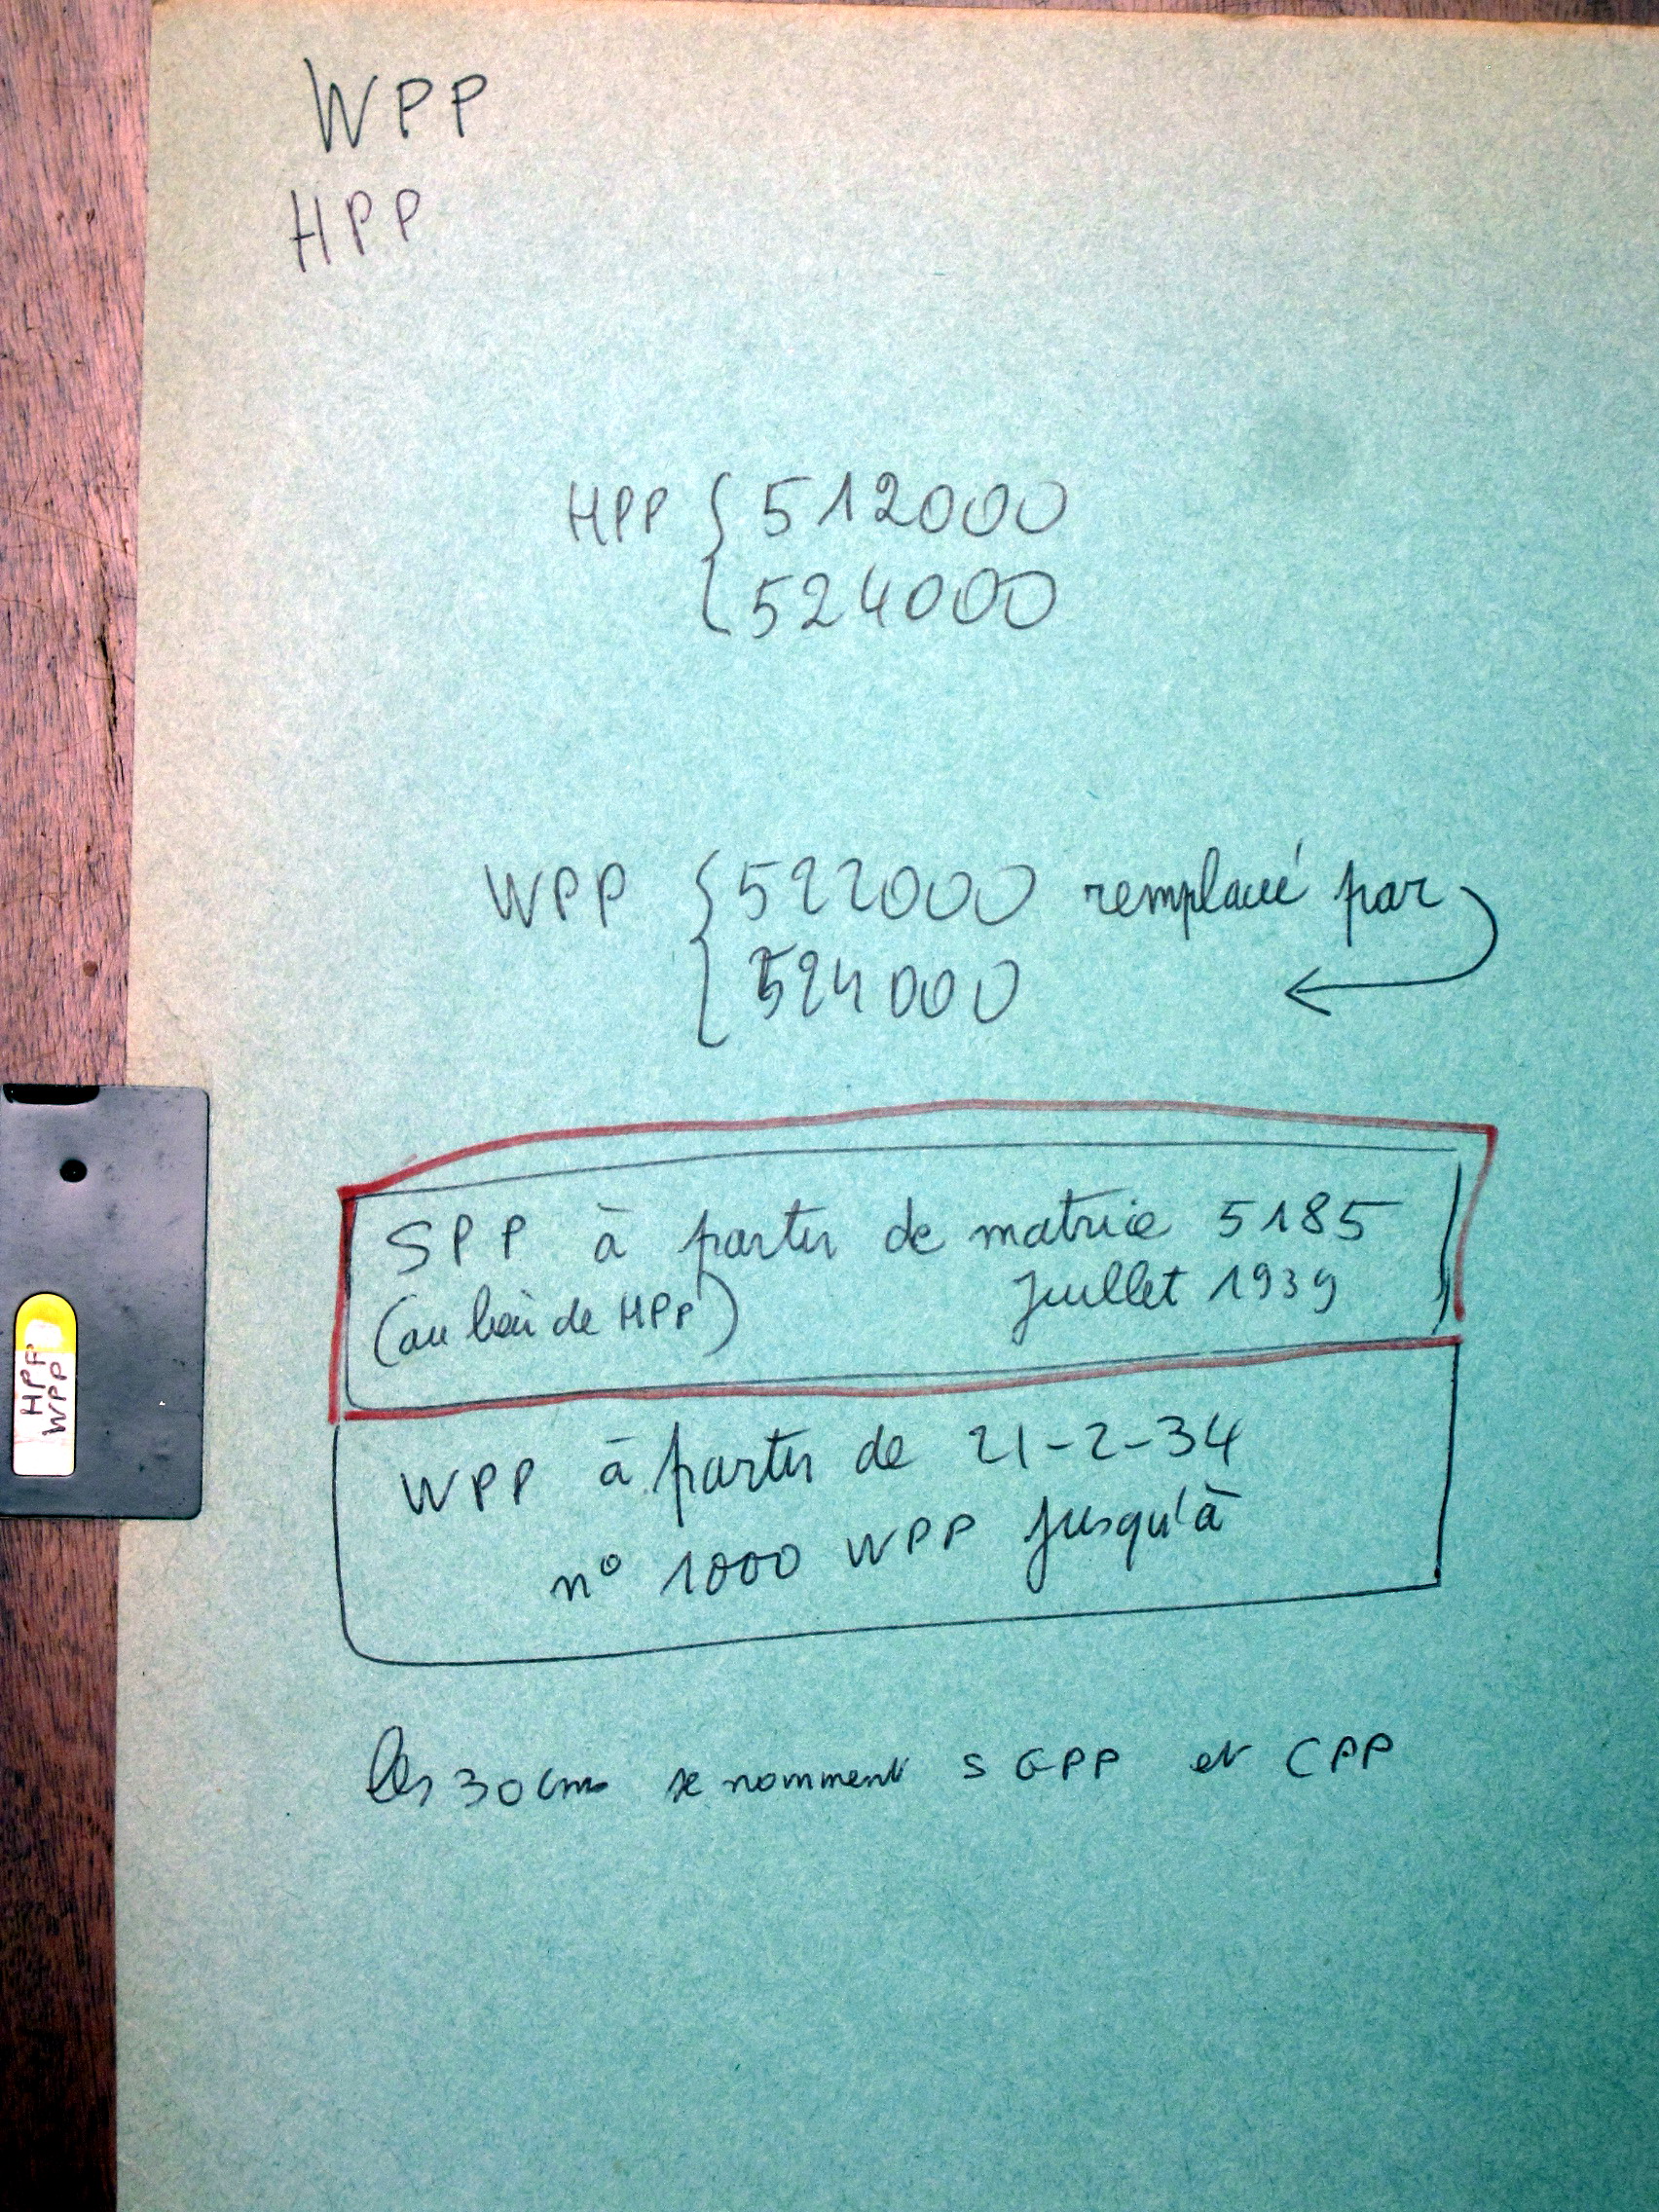 WPP
HPP
HPP { 512000
{ 524000
WPP { 522000 remplacé par
{ 524000
SPP à partir de matrice 5185
(au lieu de HPP) Juillet 1939
WPP à partir de 21-2-34
n° 1000 WPP jusqu'à
les 30 cm se nomment SGPP et CPP
HPP
WPP